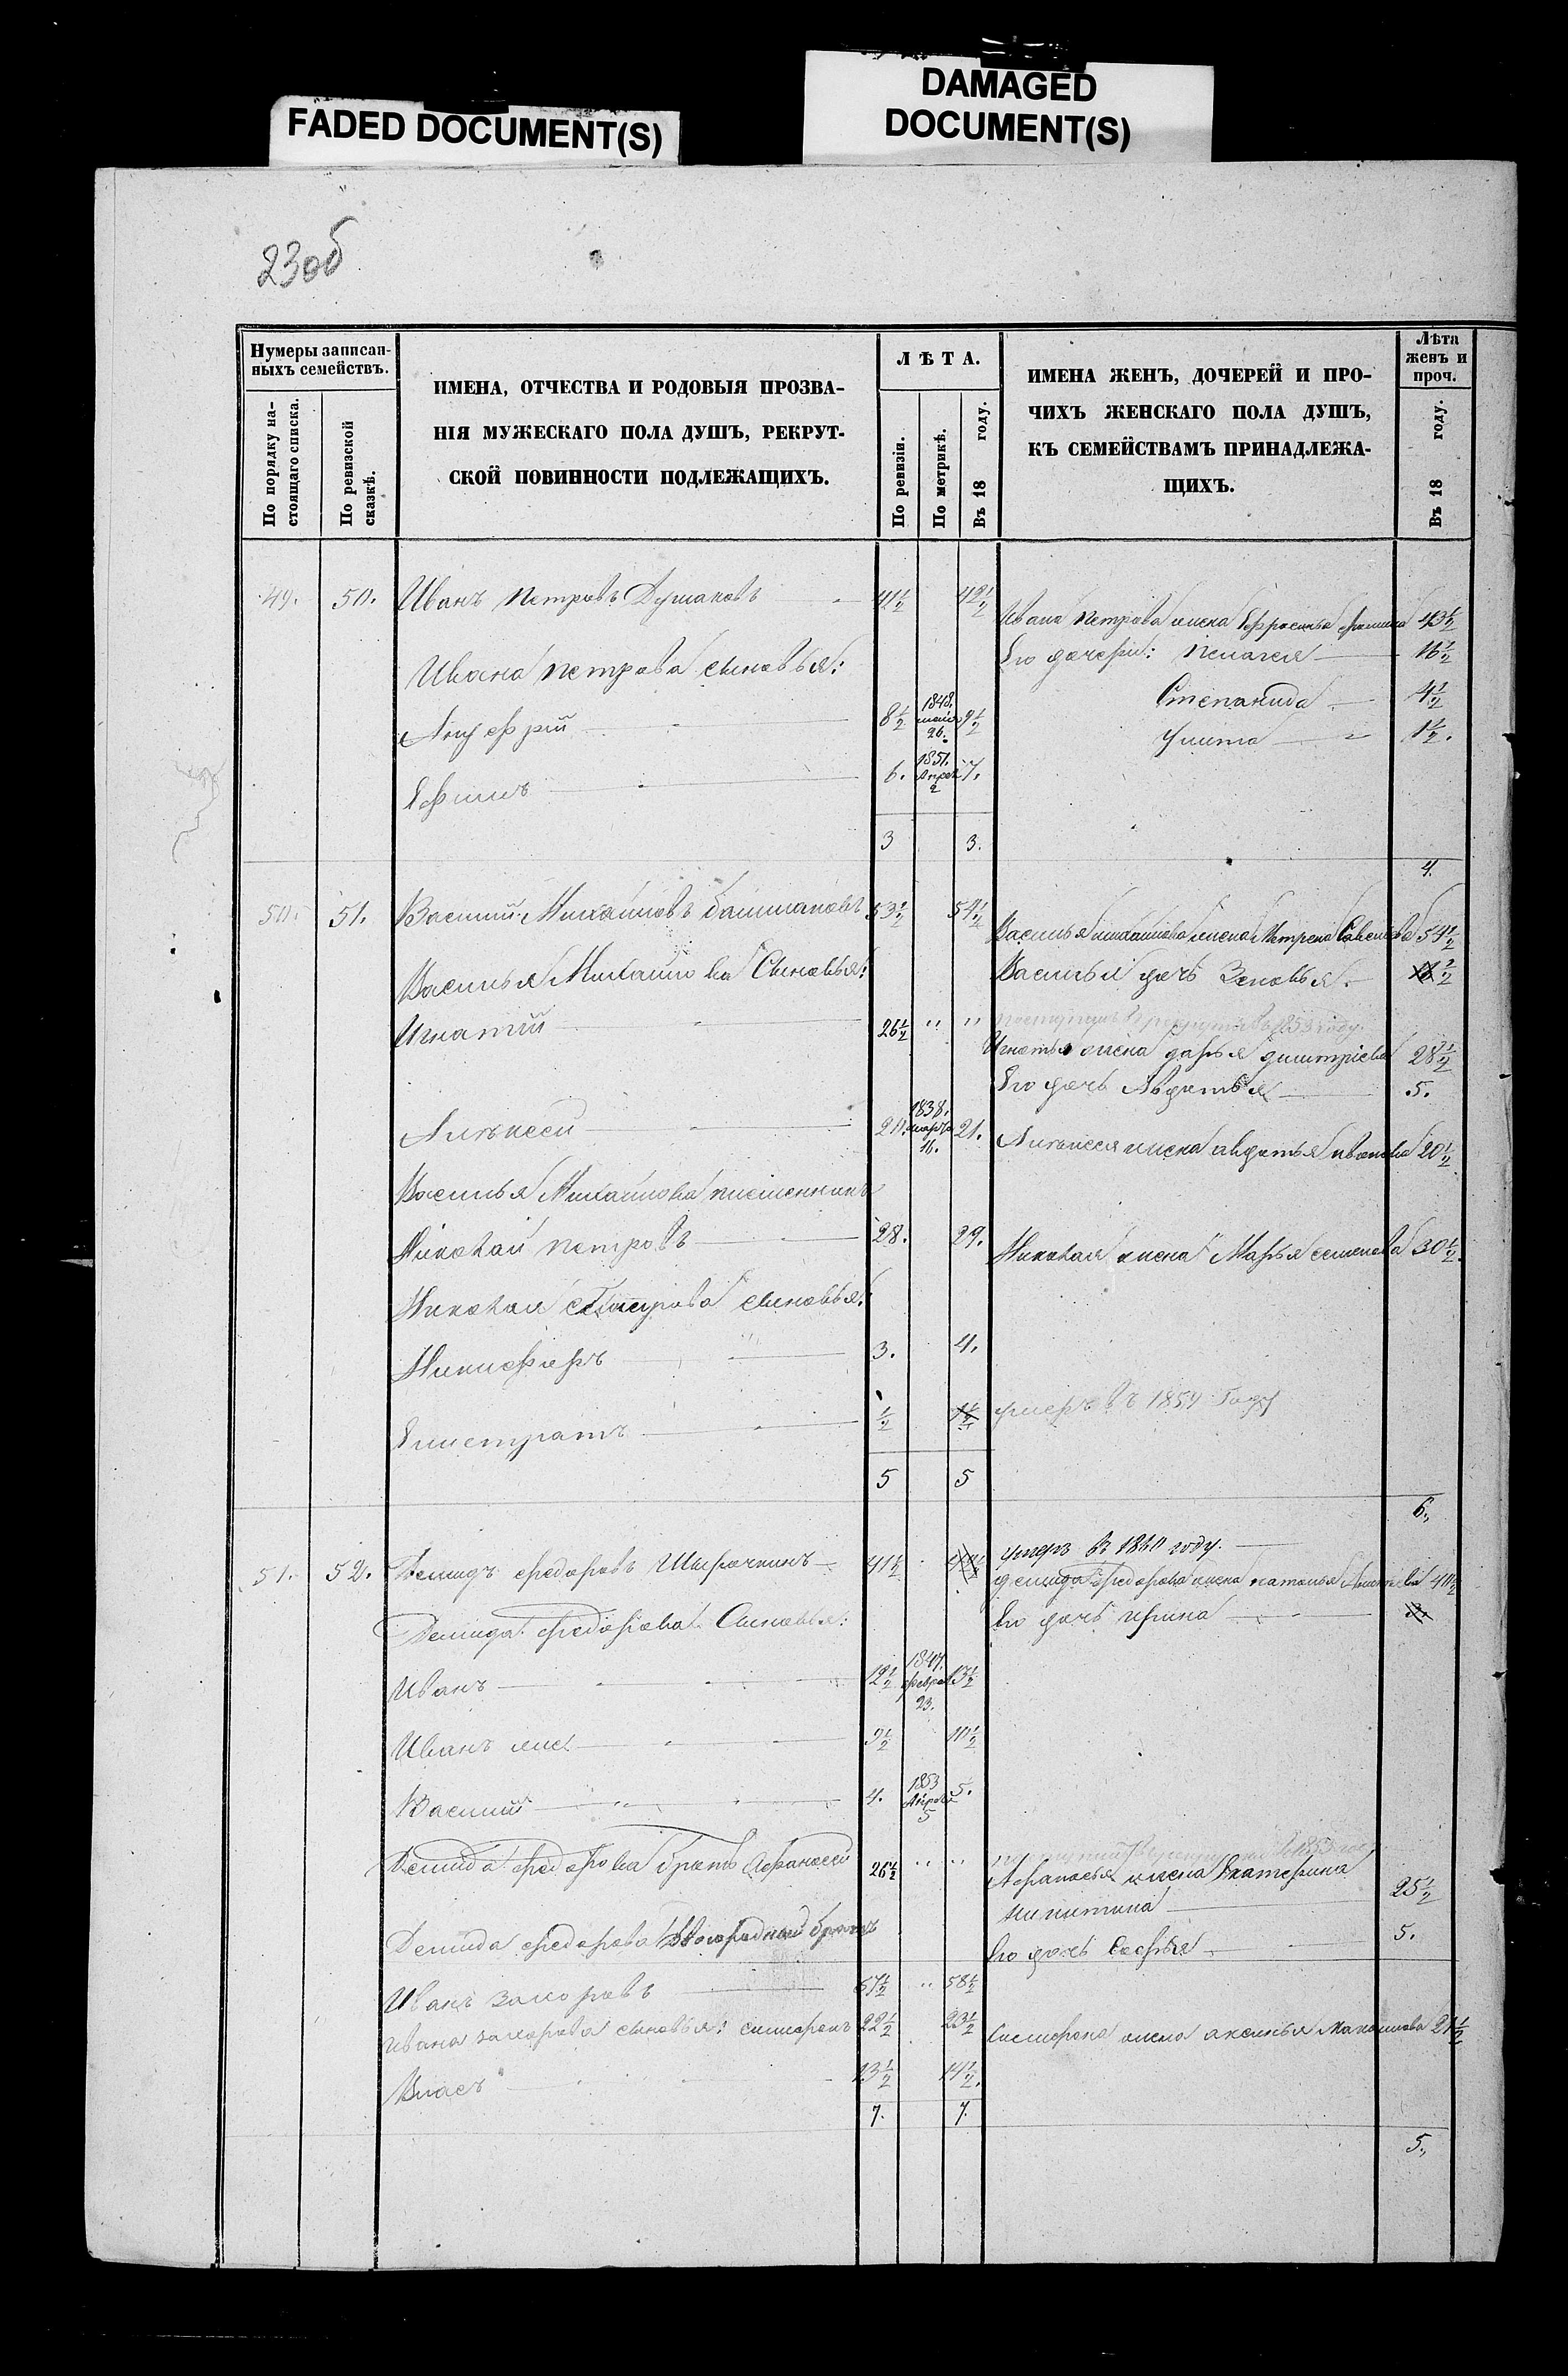 FADED DOCUMENT(S)
DAMAGED
DOCUMENT(S)
23об
Нумеры записан-
ныхъ семействъ.
По порядку на-
стоящаго списка.
По ревизской
сказкѣ.
ИМЕНА, ОТЧЕСТВА И РОДОВЫЯ ПРОЗВА-
НІЯ МУЖЕСКАГО ПОЛА ДУШЪ, РЕКРУТ-
СКОЙ ПОВИННОСТИ ПОДЛЕЖАЩИХЪ.
ЛѢТА.
По ревизіи.
По метрикѣ.
Въ 18 году.
ИМЕНА ЖЕНЪ, ДОЧЕРЕЙ И ПРО-
ЧИХЪ ЖЕНСКАГО ПОЛА ДУШЪ,
КЪ СЕМЕЙСТВАМЪ ПРИНАДЛЕЖА-
ЩИХЪ.
Лѣта
женъ и
проч.
Въ 18 году.
49. 50. Иванъ Петровъ 41½ 42½
Ивана Петрова жена Ефросинья 43½
Его дочери: Пелагея 16½
Ивана Петрова сыновья:
Степанида 4½
8½ 1848. 26. 9½
Улита 1½.
Ефимъ 6. 1851. Апрел 2 7.
3 3.
4.
50. 51. Василий Михайловъ Башмаковъ 53½ 54½
Василья Михайлова жена Матрена 54½
Василья Михайлова Сыновья:
Василья дочь Зеновья. ½
Игнатий 26½ " " поступилъ в рекруты въ 1853 году.
Игнатья жена Дарья Дмитриева 28½
Его дочь Авдотья 5.
Алексей 20. 1838. марта 16. 21. Алексея жена Авдотья Иванова 20½
Василья Михайлова племянникъ
Николай Петровъ 28. 29. Николая жена Марья Семенова 30½.
Николая Петрова сыновья:
Никифоръ 3. 4.
Елистратъ ½ 1½ умеръ въ 1854 Году
5 5
6.
51. 52. Демидъ Федоровъ 41½ умеръ в 1860 году.
Демида Федорова жена Наталья 40½
Демида Федорова Сыновья:
Его дочь Ирина 3.
Иванъ 12½ 1847. феврал 23. 13½
Иванъ мен 9½ 10½
Василий 4. 1853 Апрел 5 5.
Демида Федорова братъ Афанасей 26½ " " 1853
Афанасья жена Екатерина
Никитина 25½
Демида Федорова двоюродный братъ
Его дочь Софья 5.
Иванъ Захоровъ 57½ " 58½
Ивана Захорова сыновья: Селиферонъ 22½ 23½ жена Аксинья 21½
Власъ 13½ 14½.
7. 7.
5.